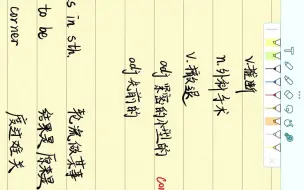 v. 推断
n. 外科手术
v. 撤退
adj 紧密的小型的
adj 先前的
s in sth. 轮流做某事
to be 结果是,原来是
corner 度过难关